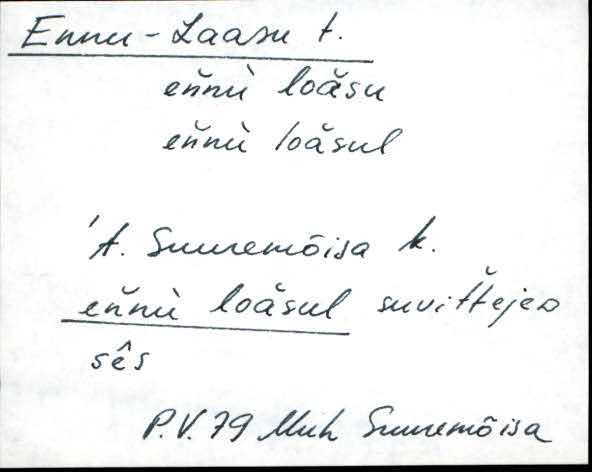 Ennu-Laasu t.
eňnù loăsu
eňnù loăsul
'A. Suuremõisa k.
eňnù loăsul suvit́t́ejeᴅ
sês
P.V. 79 Muh Suuremõisa